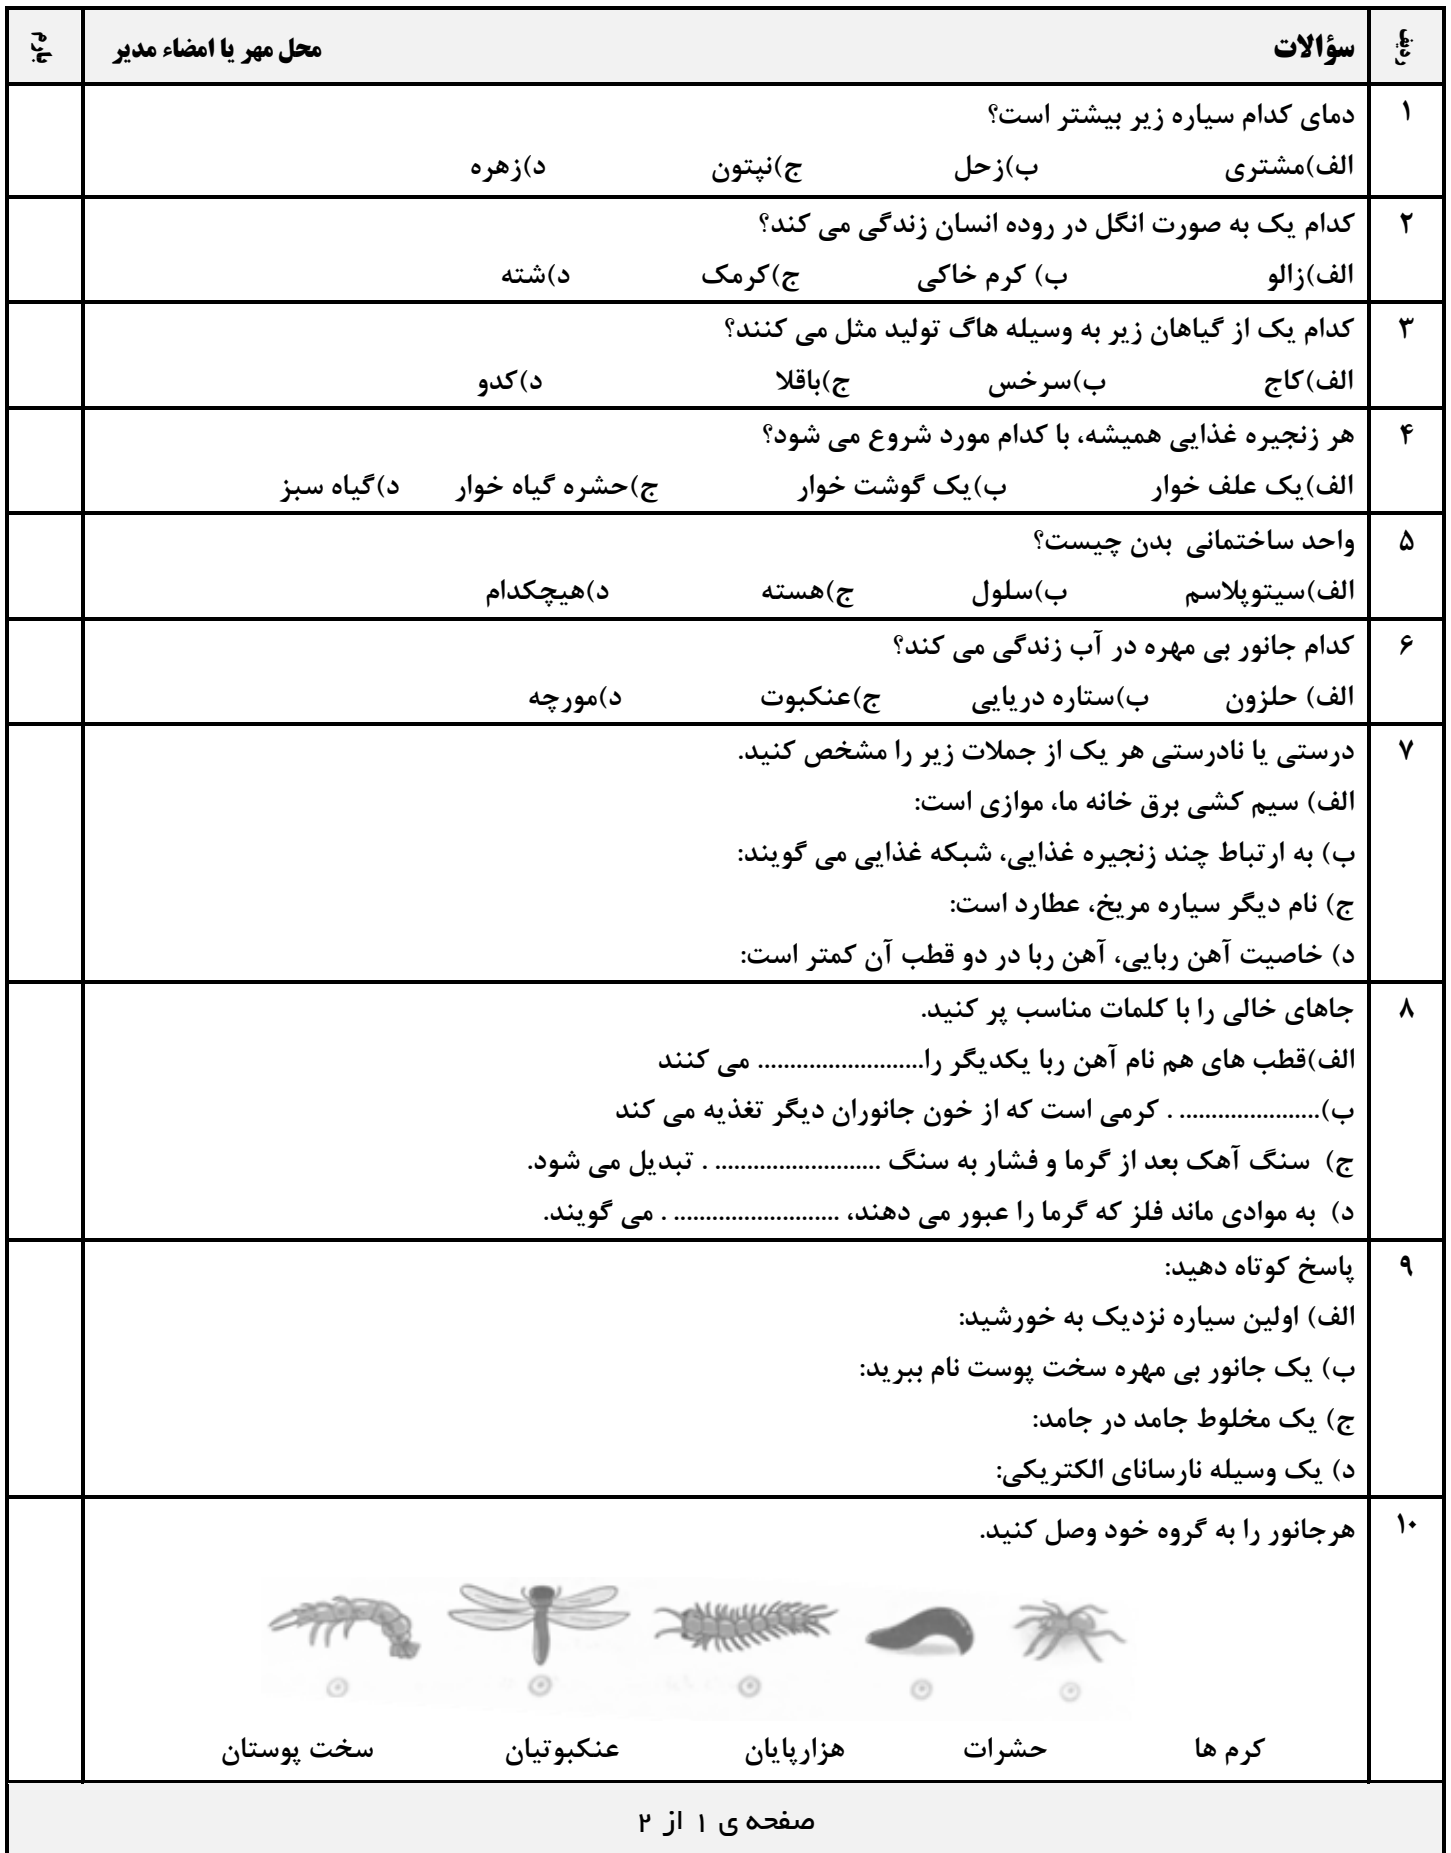 ردیف سؤالات محل مهر یا امضاء مدیر بارم
۱ دمای کدام سیاره زیر بیشتر است؟
الف)مشتری ب)زحل ج)نپتون د)زهره
۲ کدام یک به صورت انگل در روده انسان زندگی می کند؟
الف)زالو ب) کرم خاکی ج)کرمک د)شته
۳ کدام یک از گیاهان زیر به وسیله هاگ تولید مثل می کنند؟
الف)کاج ب)سرخس ج)باقلا د)کدو
۴ هر زنجیره غذایی همیشه، با کدام مورد شروع می شود؟
الف)یک علف خوار ب)یک گوشت خوار ج)حشره گیاه خوار د)گیاه سبز
۵ واحد ساختمانی بدن چیست؟
الف)سیتوپلاسم ب)سلول ج)هسته د)هیچکدام
۶ کدام جانور بی مهره در آب زندگی می کند؟
الف) حلزون ب)ستاره دریایی ج)عنکبوت د)مورچه
۷ درستی یا نادرستی هر یک از جملات زیر را مشخص کنید.
الف) سیم کشی برق خانه ما، موازی است:
ب) به ارتباط چند زنجیره غذایی، شبکه غذایی می گویند:
ج) نام دیگر سیاره مریخ، عطارد است:
د) خاصیت آهن ربایی، آهن ربا در دو قطب آن کمتر است:
۸ جاهای خالی را با کلمات مناسب پر کنید.
الف)قطب های هم نام آهن ربا یکدیگر را.......................... می کنند
ب)...................... . کرمی است که از خون جانوران دیگر تغذیه می کند
ج) سنگ آهک بعد از گرما و فشار به سنگ .......................... . تبدیل می شود.
د) به موادی ماند فلز که گرما را عبور می دهند، .......................... . می گویند.
۹ پاسخ کوتاه دهید:
الف) اولین سیاره نزدیک به خورشید:
ب) یک جانور بی مهره سخت پوست نام ببرید:
ج) یک مخلوط جامد در جامد:
د) یک وسیله نارسانای الکتریکی:
۱۰ هرجانور را به گروه خود وصل کنید.
کرم ها حشرات هزارپایان عنکبوتیان سخت پوستان
صفحه ی ۱ از ۲